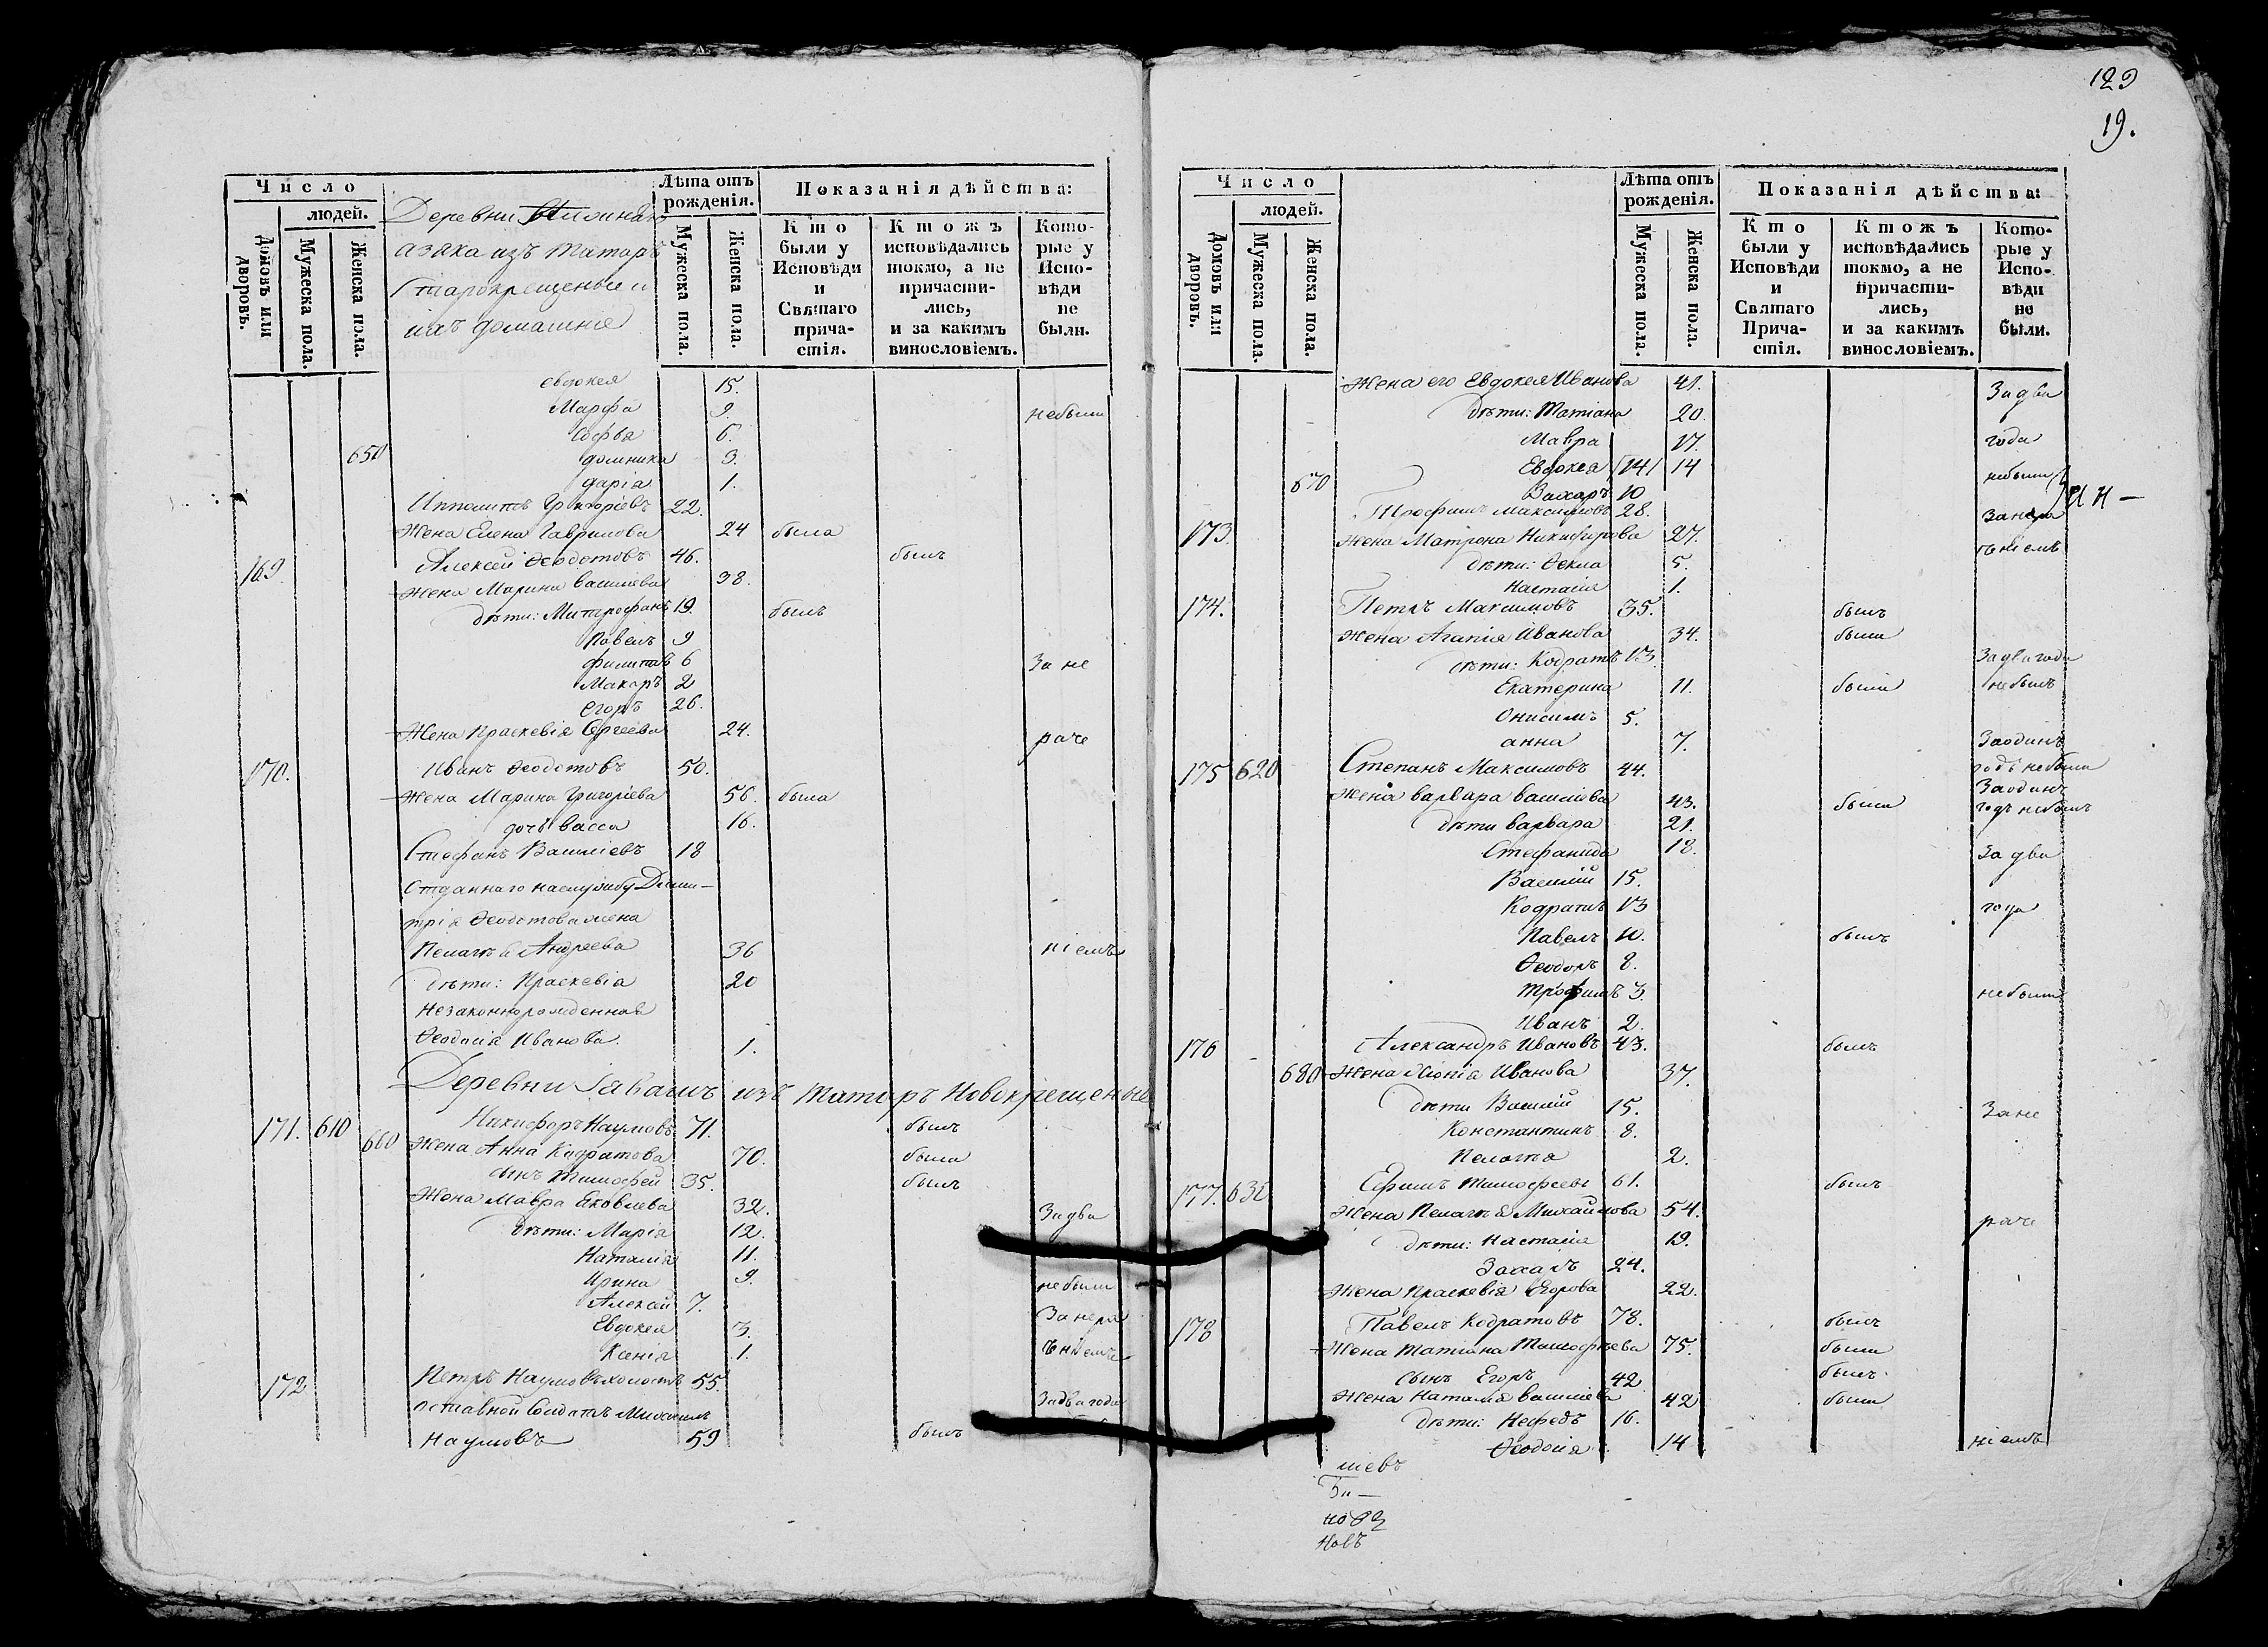 Число
людей.
Домовъ или дворовъ.
Мужеска пола.
Женска пола.
Деревни
азяка изъ татаръ
Старокрещеные и
ихъ домашніе
Лѣта отъ рожденія.
Мужеска пола.
Женска пола.
Показанія дѣйства:
Кто были у Исповѣди и Святаго причастія.
Ктожъ исповѣдались токмо, а не причастились, и за какимъ винословіемъ.
Которые у Исповѣди не были.
Евдокея 15.
Марфа 9. небыли
Софья 6.
650 Домника 3.
Дарія 1.
Ипполитъ Григоріевъ 22.
Жена Елена Гаврилова 24 была
169. Алексей Ѳеодотовъ 46. былъ
Жена Марина Василіева 38.
Дѣти: Митрофанъ 19. былъ
Павелъ 9
Филиппъ 6 За не
Макаръ 2
Егоръ 26.
Жена Праскевія Сергеева 24. раче
170. Иванъ Ѳеодотовъ 50.
Жена Марина Григоріева 56. была
дочь Васса 16.
Стефанъ Василіевъ 18
Отданнаго наслужбу Дими-
трія Ѳеодотова жена
Пелагея Андреева 36 ніемъ
Дѣти: Праскевія 20
Незаконнорожденная
Ѳеодосія Иванова. 1.
Деревни изъ Татаръ Новокрещеные
171. 610 Никифоръ Наумовъ 71. былъ
660 Жена Анна Кодратова 70. была
сынъ Тимофей 35. былъ
Жена Мавра Яковлева 32. За два
Дѣти: Марія 12.
Наталія 11.
Ирина 9. небыли
Алексей 7.
Евдокея 3. За нера
Ксенія 1. ѣніемъ
172 Петръ Наумовъ холостъ 55. За два года
отставной Солдатъ Михаилъ
Наумовъ 59 былъ
129
19.
Число
людей.
Домовъ или дворовъ.
Мужеска пола.
Женска пола.
Лѣта отъ рожденія.
Мужеска пола.
Женска пола.
Показанія дѣйства:
Кто были у Исповѣди и Святаго Причастія.
Ктожъ исповѣдались токмо, а не причастились, и за какимъ винословіемъ.
Которые у Исповѣди не были.
Жена его Евдокея Иванова 41. За два
Дѣти: Татіана 20.
Мавра 17. года
670 Евдокея /14/ 14 небыли
Захаръ 10
173. Трофимъ Максимовъ 28. За нера
Жена Матрона Никифорова 27. ѣніемъ
Дѣти: Ѳекла 5.
Настасія 1.
174. Петръ Максимовъ 35. былъ
Жена Агапія Иванова 34. была
Дѣти: Кодратъ 13. За два года
Екатерина 11. была небылъ
Онисимъ 5.
Анна 7. За одинъ
175 620 Степанъ Максимовъ 44. годъ небыла
Жена Варвара Василіева 43. была За одинъ годъ небылъ
Дѣти Варвара 21.
Стефанида 18. За два
Василій 15.
Кодратъ 13 года
Павелъ 10. былъ
Ѳеодоръ 8.
Трофимъ 3. небыли
Иванъ 2.
176 Александръ Ивановъ 43. былъ
680 Жена Иванова 37.
Дѣти Василій 15. За не
Константинъ 8.
Пелагея 2.
177. 630 Ефимъ Тимофеевъ 61. былъ
Жена Пелагея Михайлова 54. раче
Дѣти: Настасія 19.
Захаръ 24.
Жена Праскевія Егорова 22.
178 Павелъ Кодратовъ 78. былъ
Жена Татіана Тимофѣева 75. была
Сынъ Егоръ 42 былъ
Жена Наталія Василіева 42 была
Дѣти: Нефедъ 16.
Ѳеодосія 14 ніемъ
новъ